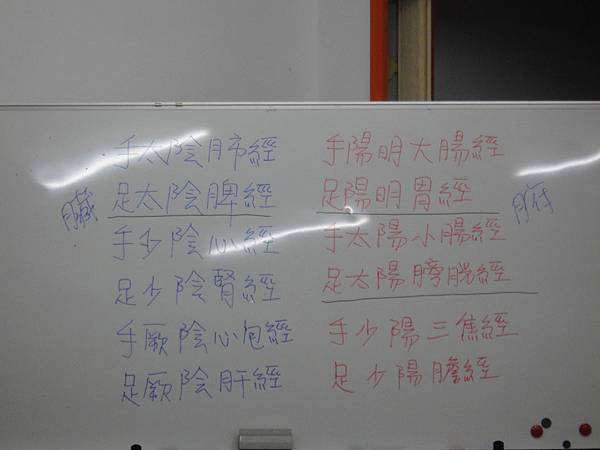 臟
手太陰肺經
足太陰脾經
手少陰心經
足少陰腎經
手厥陰心包經
足厥陰肝經
手陽明大腸經
足陽明胃經
手太陽小腸經
足太陽膀胱經
手少陽三焦經
足少陽膽經
腑